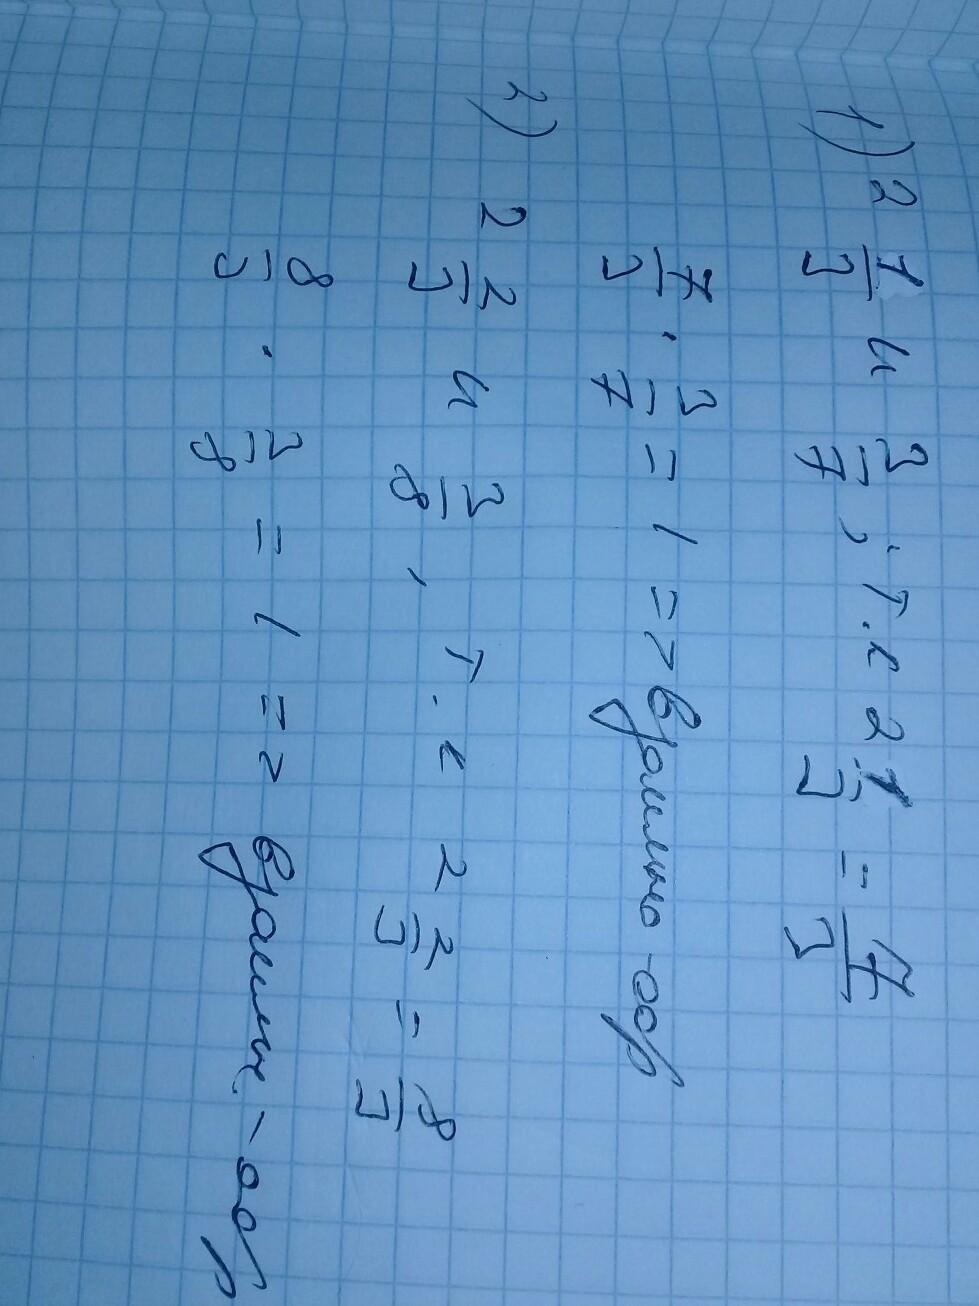 1) 2 1/3 и 3/7 ; т.к 2 1/3 = 7/3
7/3 · 3/7 = 1 => взаимно-обр
2) 2 2/3 и 3/8 , т.к 2 2/3 = 8/3
8/3 · 3/8 = 1 => взаимн.-обр